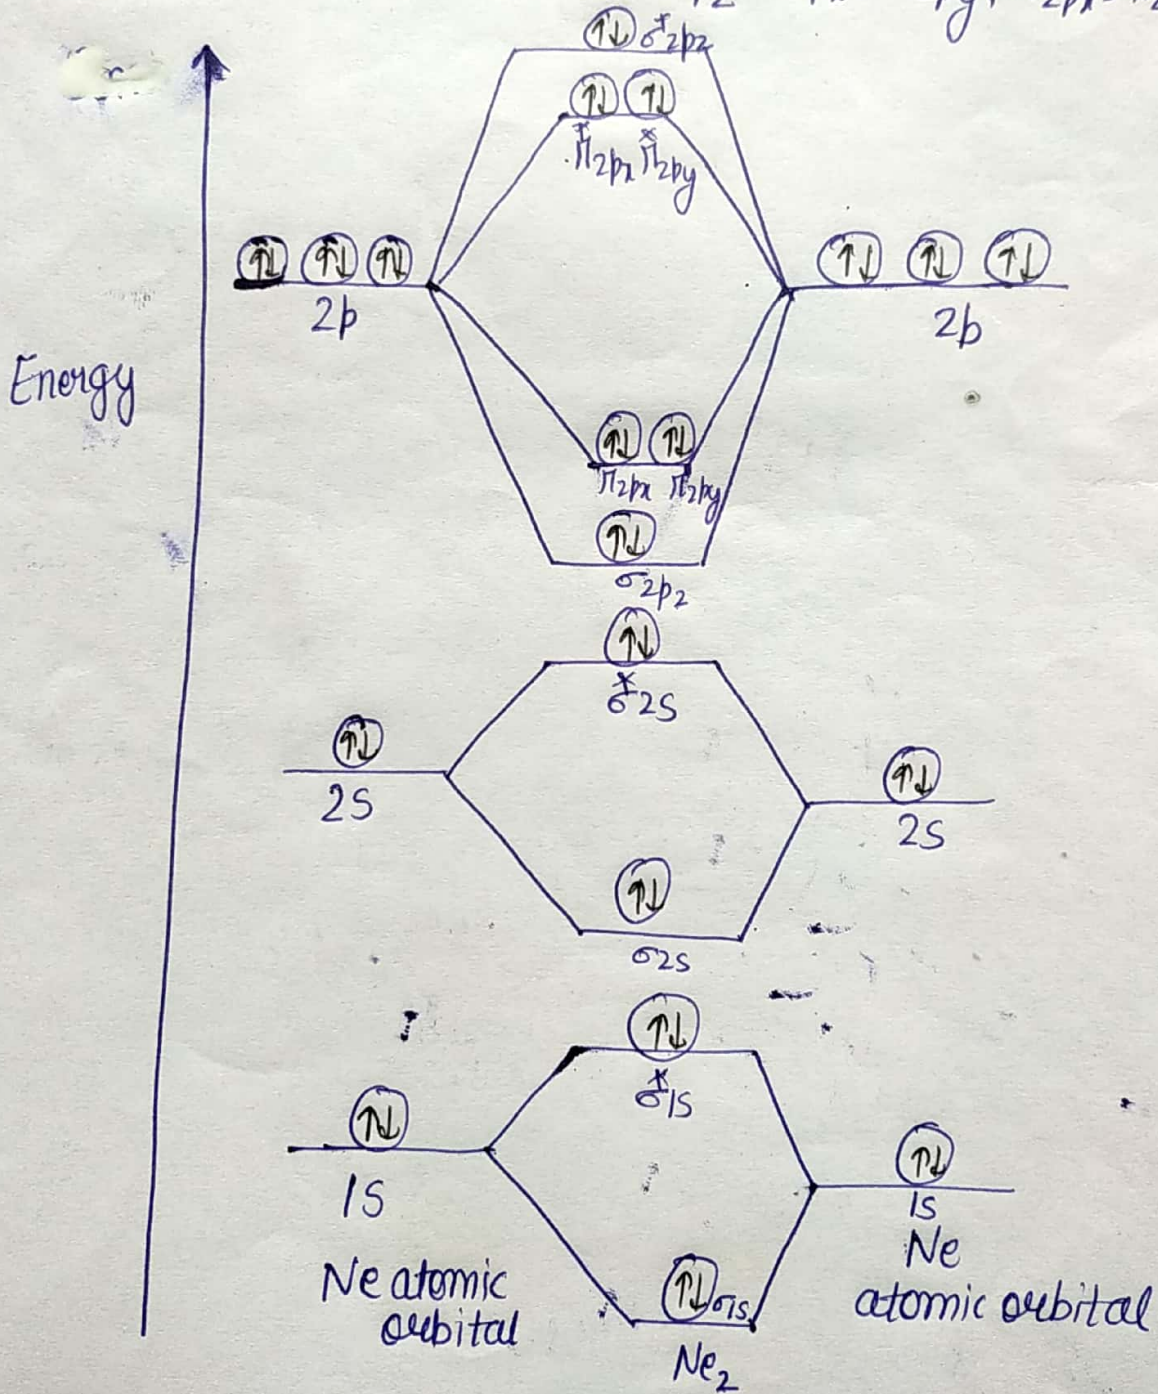 σ*2pz
π*2px π*2py
2p
2p
Energy
π2px π2py
σ2pz
σ*2s
2s
2s
σ2s
σ*1s
1s
1s
Ne
Ne atomic
orbital
atomic orbital
σ1s
Ne2